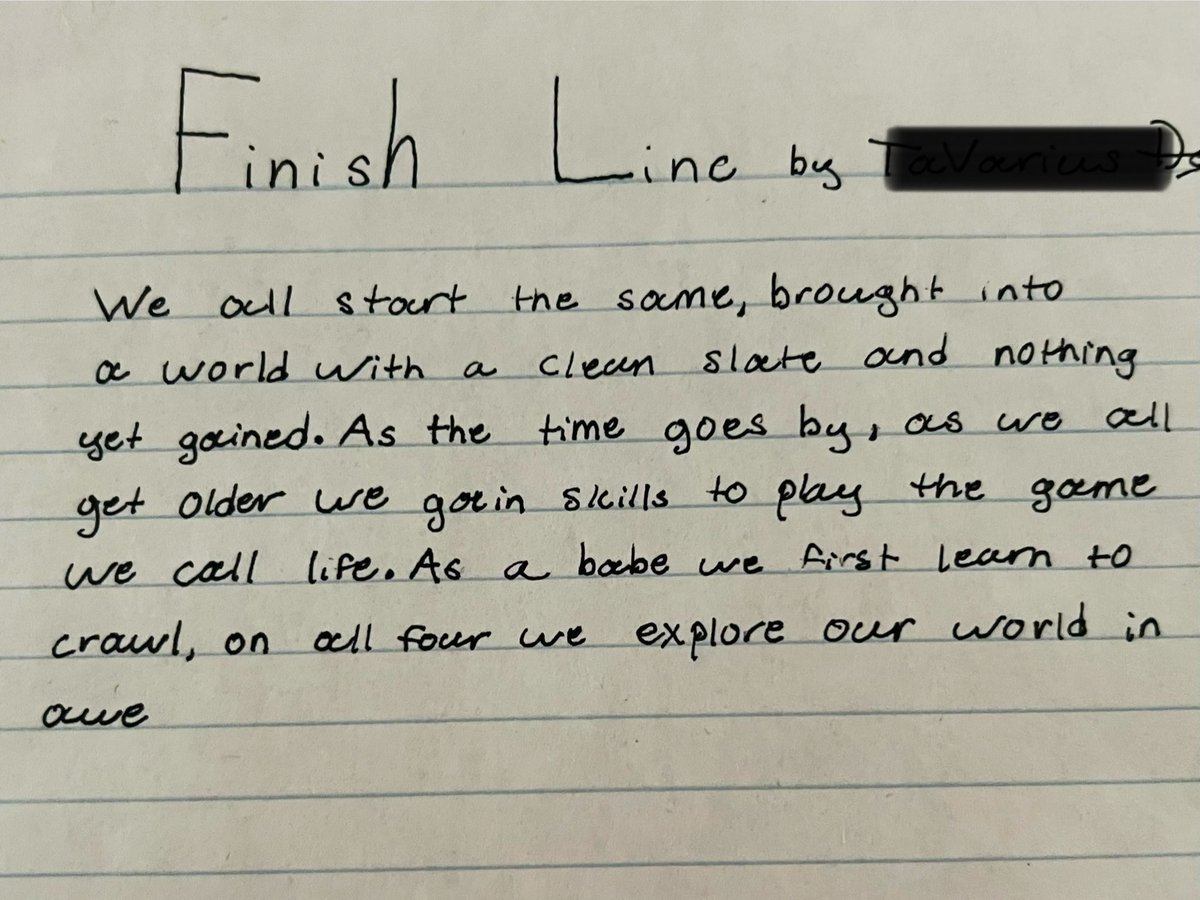 Finish Line by
We all start the same, brought into
a world with a clean slate and nothing
yet gained. As the time goes by, as we all
get older we gain skills to play the game
we call life. As a babe we first learn to
crawl, on all four we explore our world in
awe